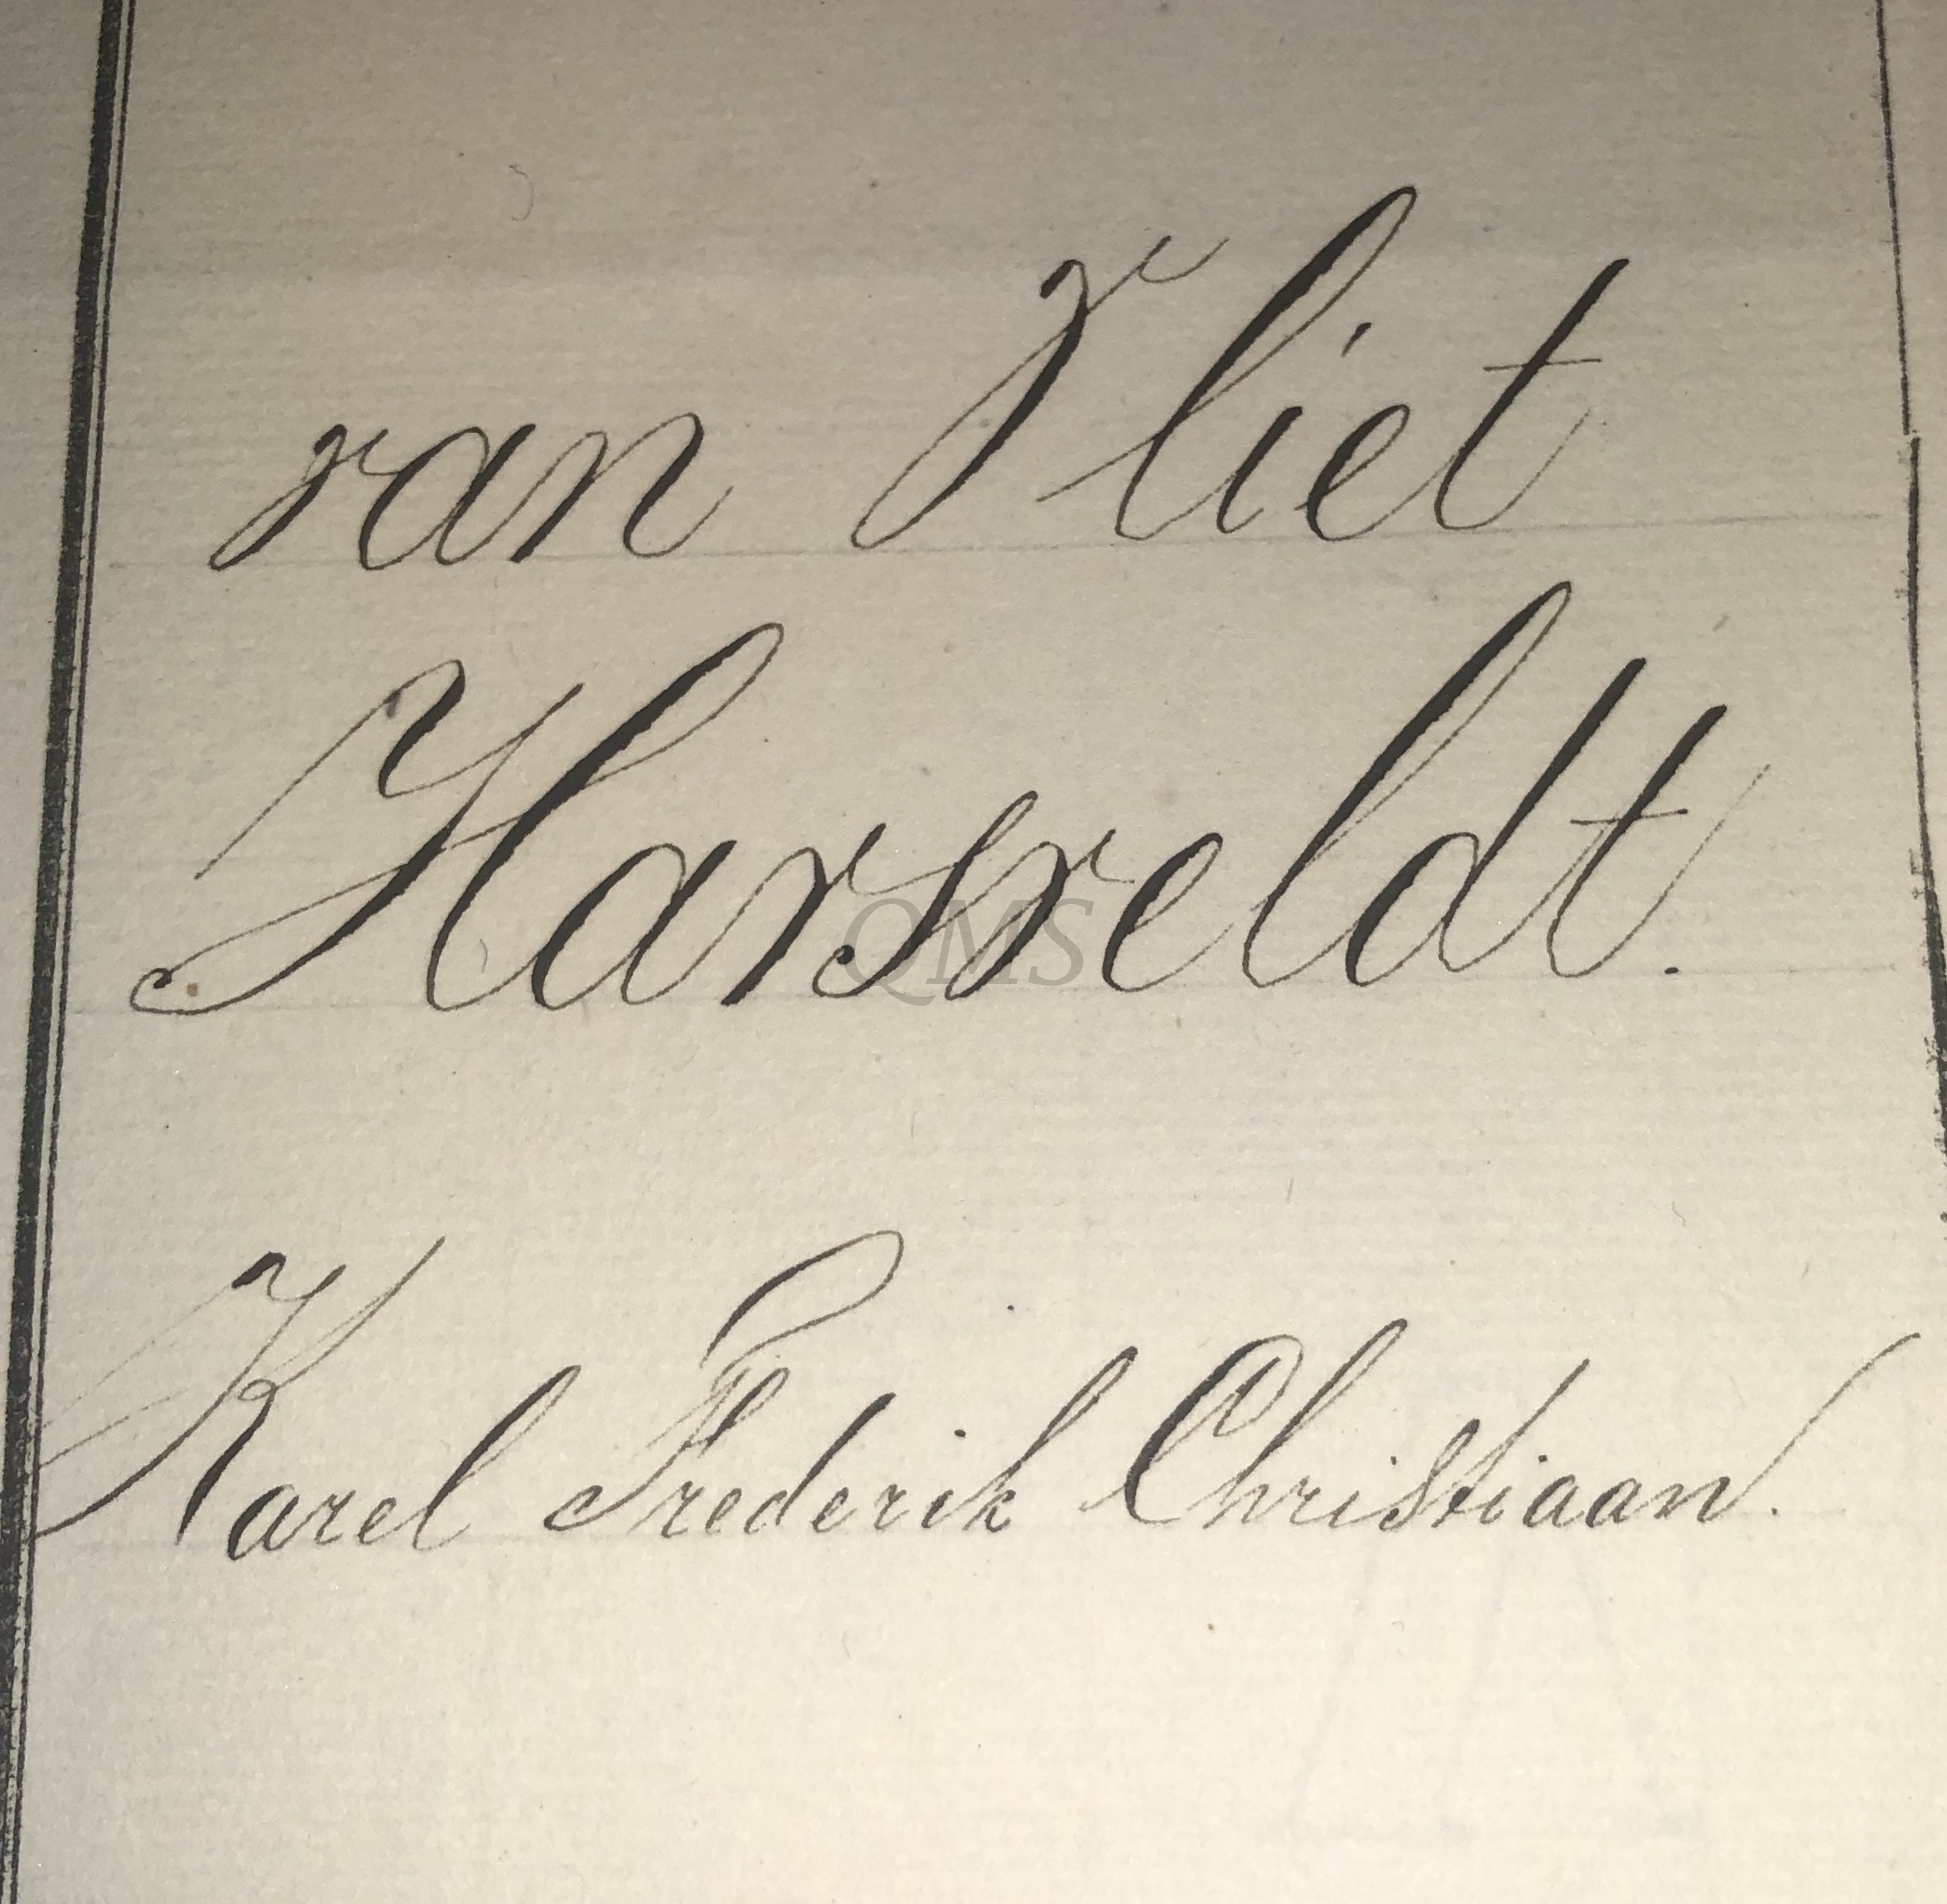 van Vliet
Harsveldt.
QMS
Karel Frederik Christiaan.